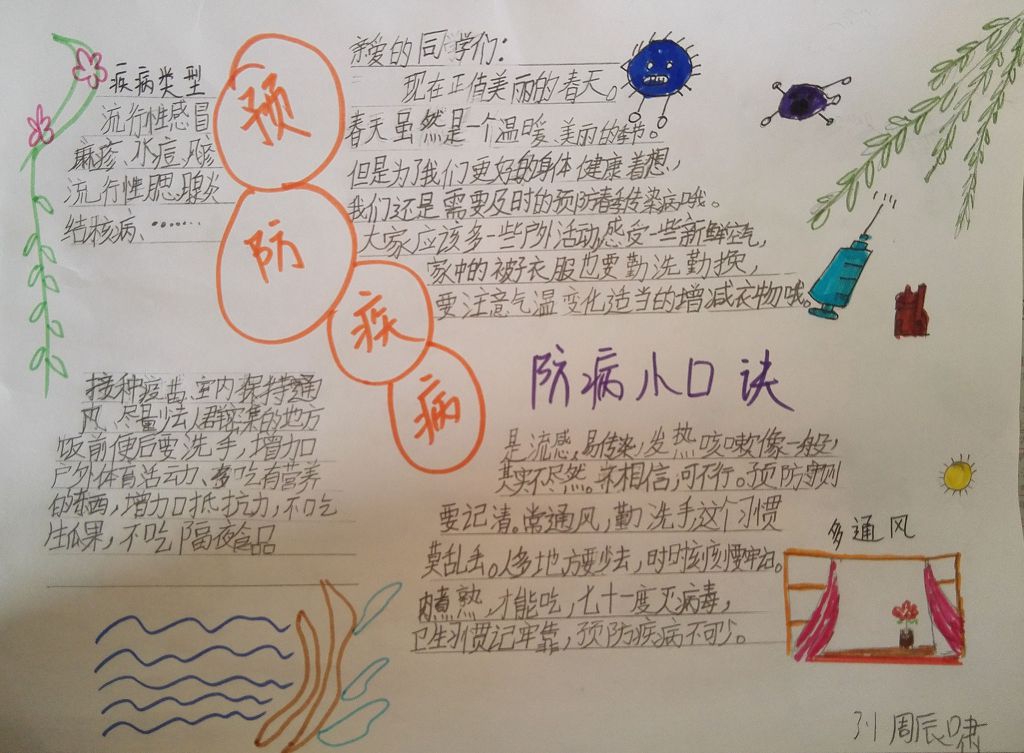 疾病类型
流行性感冒
麻疹、水痘、风疹
流行性腮腺炎
结核病、……
预
防
疾
病
亲爱的同学们：
现在正值美丽的春天。
春天虽然是一个温暖、美丽的季节。
但是为了我们更好的身体健康着想，
我们还是需要及时的预防春季传染病哦。
大家应该多一些户外活动感受一些新鲜空气，
家中的被子衣服也要勤洗勤换，
要注意气温变化适当的增减衣物哦。
接种疫苗、室内保持通
风、尽量少去人群密集的地方
饭前便后要洗手，增加
户外体育活动、多吃有营养
的东西，增加抵抗力，不吃
生瓜果，不吃隔夜食品
防病小口诀
是流感，易传染，发热咳嗽像一般，
其实不尽然。不相信，可不行。预防守则
要记清。常通风，勤洗手这个习惯
莫乱丢。人多地方要少去，时时刻刻要牢记。
肉煮熟，才能吃，七十一度灭病毒，
卫生习惯记牢靠，预防疾病不可少。
多通风
31 周辰啸